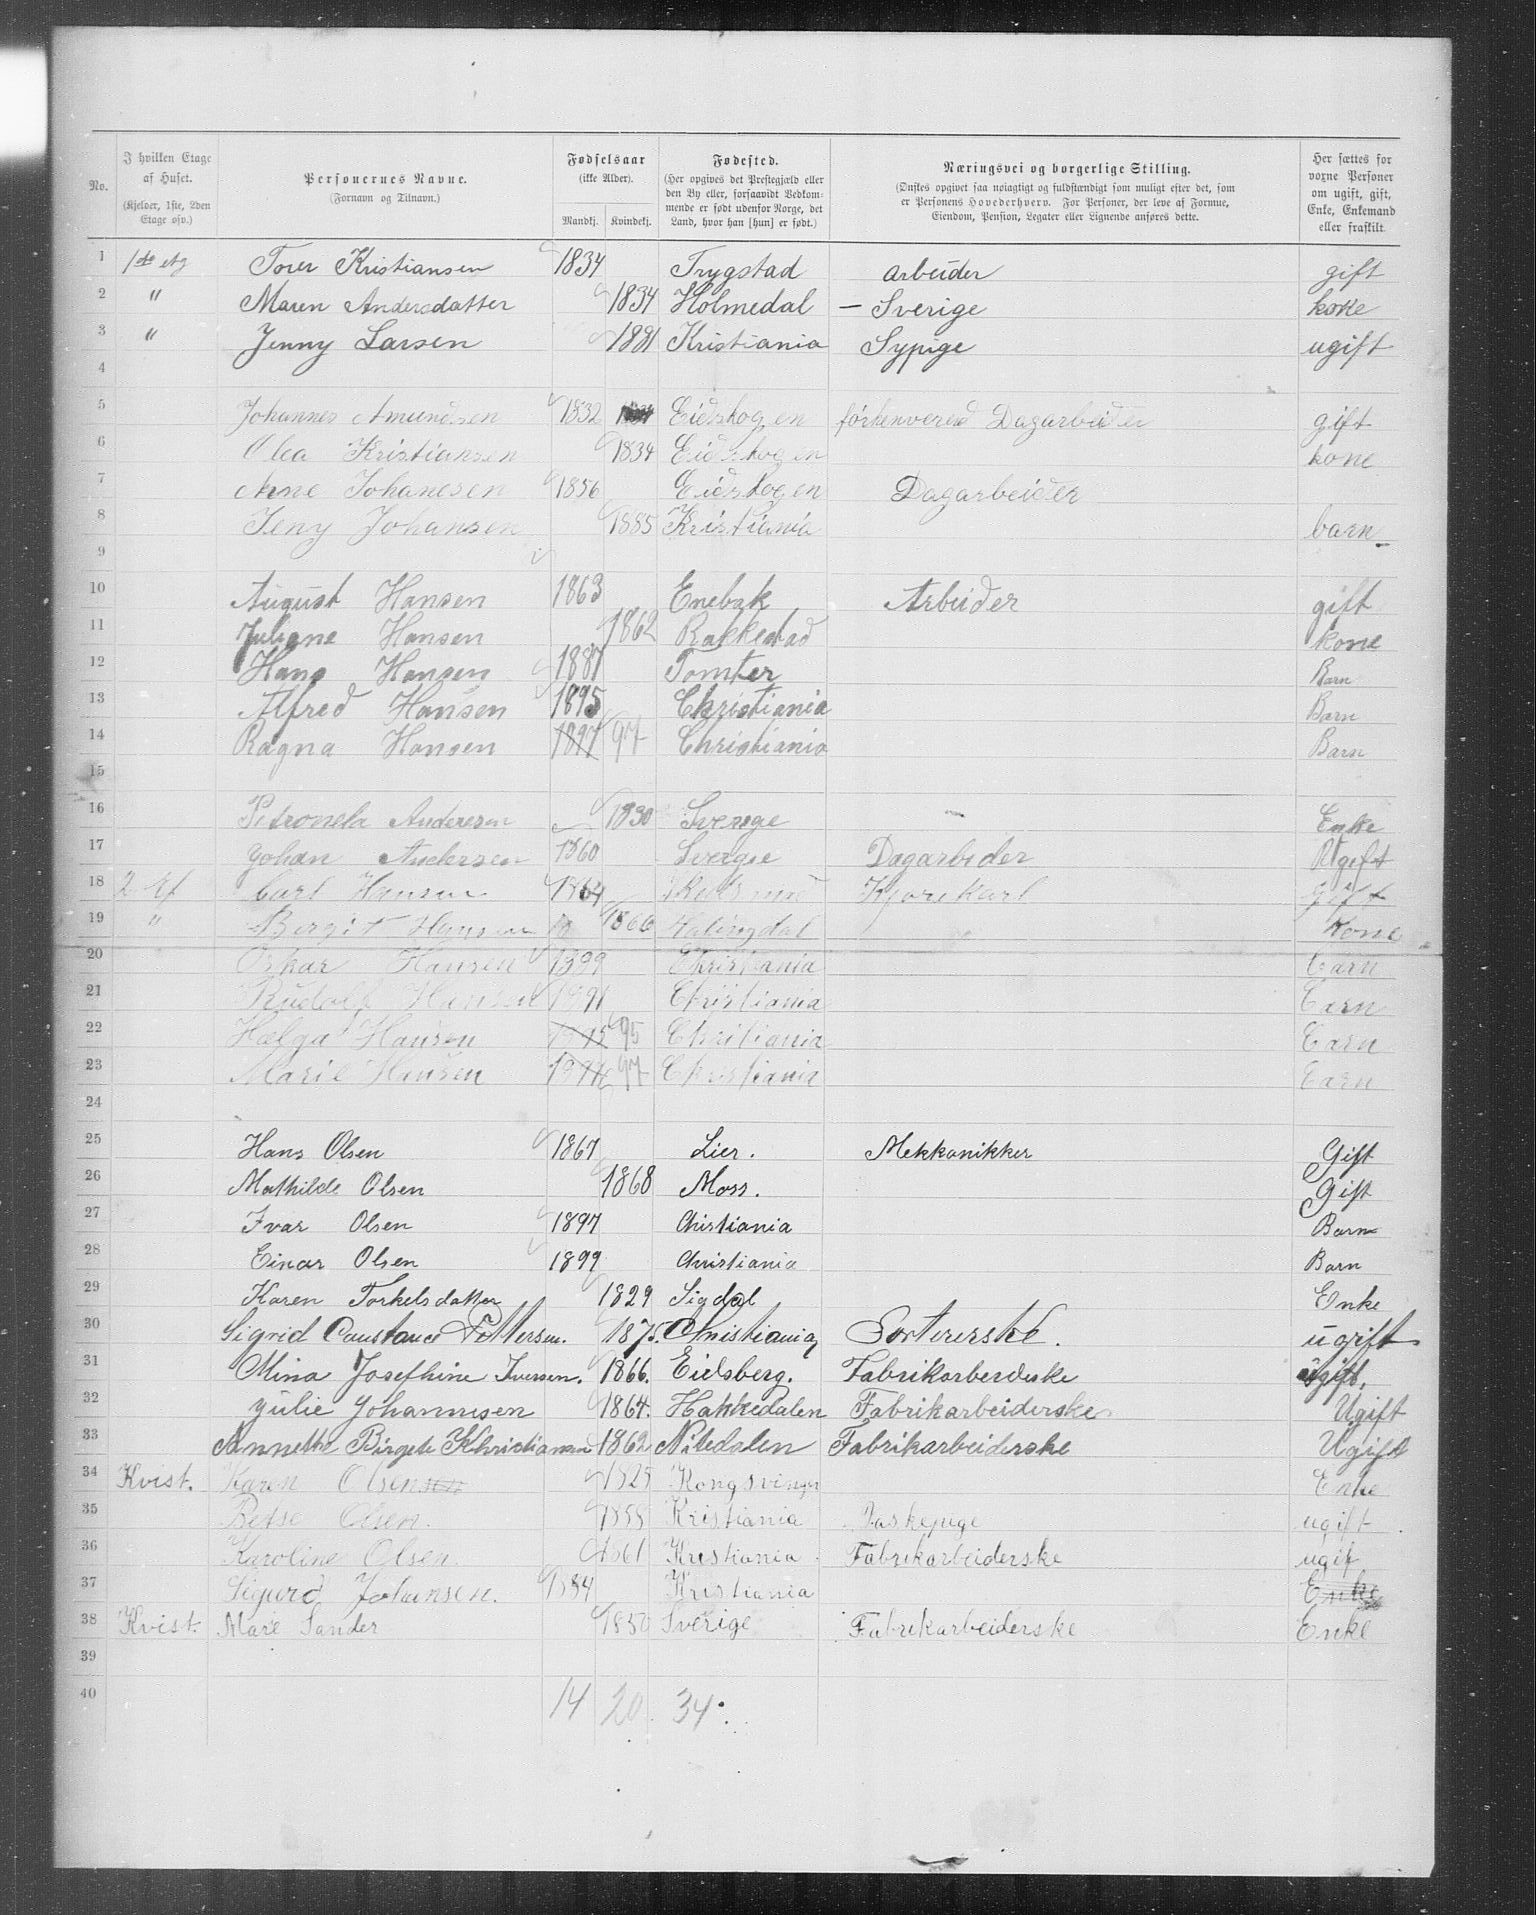 No.
I hvilken Etage af Huset.
(Kjelder, 1ste, 2den Etage osv.)
Personernes Navne.
(Fornavn og Tilnavn.)
Fødselsaar
(ikke Alder).
Mandkj. Kvindekj.
Fødested.
(Her opgives det Prestegjæld eller den By eller, forsaavidt Vedkommende er født udenfor Norge, det Land, hvor han [hun] er født.)
Næringsvei og borgerlige Stilling.
(Ønskes opgivet saa nøiagtigt og fuldstændigt som muligt efter det, som er Personens Hovederhverv. For Personer, der leve af Formue, Eiendom, Pension, Legater eller Lignende anføres dette.
Her sættes for voxne Personer om ugift, gift, Enke, Enkemand eller fraskilt.
1 1ste Etg Torer Kristiansen 1834 Trygstad arbeider gift
2 " Maren Andersdatter 1834 Holmedal – Sverige kone
3 " Jenny Larsen 1881 Kristiania Sypige ugift
4
5 Johannes Amundsen 1832 Eidskogen Dagarbeider gift
6 Olea Kristiansen 1834 Eidskogen kone
7 Arne Johanesen 1856 Eidskogen Dagarbeider
8 Jeny Johansen 1885 Kristiania barn
9
10 August Hansen 1863 Enebak Arbeider gift
11 Juliane Hansen 1862 Rakkestad kone
12 Hans Hansen 1887 Tomter Barn
13 Alfred Hansen 1895 Christiania Barn
14 Ragna Hansen 1897 97 Christiania Barn
15
16 Petronela Andersen 1830 Sverige Enke
17 Johan Andersen 1860 Sverge Dagarbeider Ugift
18 2 Et Carl Hansen 1864 Kjørekarl Gift
19 " Bergit Hansen 1866 Halingdal Kone
20 Oskar Hansen 1889 Christiania Barn
21 Rudolf Hansen 1891 Christiania Barn
22 Hælga Hansen 1895 95 Christiania Barn
23 Marie Hansen 1897 97 Christiania Barn
24
25 Hans Olsen 1867 Lier. Mekkanikker Gift
26 Mathilde Olsen 1868 Moss. Gift
27 Ivar Olsen 1897 Christiania Barn
28 Einar Olsen 1899 Christiania Barn
29 Karen Torkelsdatter 1829 Sigdal Enke
30 Sigrid Constance Pettersen. 1875. Christiania Sortererske. ugift
31 Mina Josefhine Iversen. 1866. Eidsberg. Fabrikarbeideske ugift.
32 Julie Johannesen 1864. Hakkedalen Fabrikarbeiderske Ugift
33 Annethe Birgete Khristiansen 1862 Nitedalen Fabrikarbeiderske Ugift
34 Kvist. Karen Olsen 1825 Kongsvinger Enke
35 Betse Olsen. 1858 Kristiania Vaskepige ugift
36 Karoline Olsen. 1861 Kristiania Fabrikarbeiderske ugif
37 Sigurd Johansen. 1884 Kristiania Enke
38 Kvist. Mare Sander 1850 Sverige Fabrikarbeiderske Enke
39
40 14 20 34